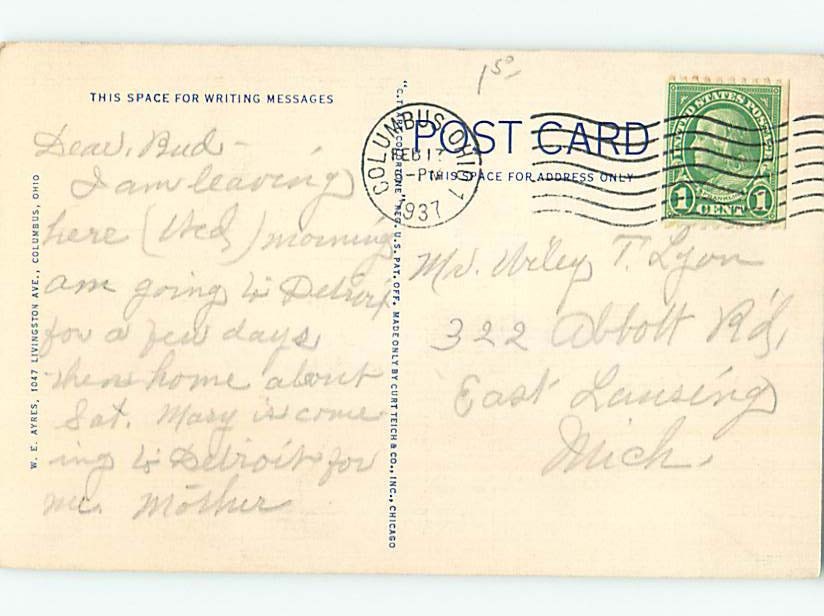 1 50
THIS SPACE FOR WRITING MESSAGES
Dear Bud -
I am leaving
here (Wed) morning
am going to Detroit
for a few days
then home about
Sat. Mary is come
ing to Detroit for
me. Mother
W. E. AYRES, 1047 LIVINGSTON AVE., COLUMBUS, OHIO
"C.T. ART-COLORTONE" REG. U.S. PAT. OFF. MADE ONLY BY CURT TEICH & CO., INC., CHICAGO
POST CARD
THIS SPACE FOR ADDRESS ONLY
COLUMBUS, OHIO 1
FEB 17
-PM
1937
UNITED STATES POSTAGE
FRANKLIN
1 CENT 1
Mr. Wiley T. Lyon
322 Abbott Rd,
East Lansing
Mich.